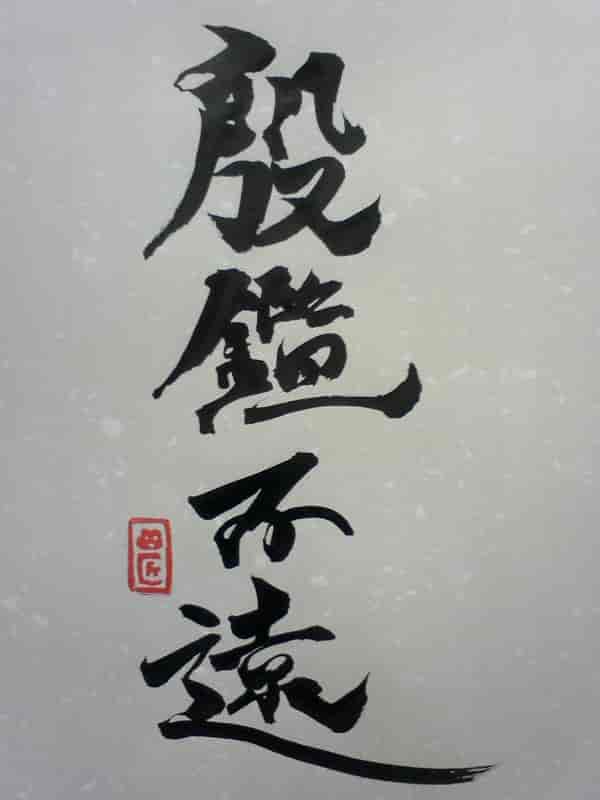 殷鑑不遠